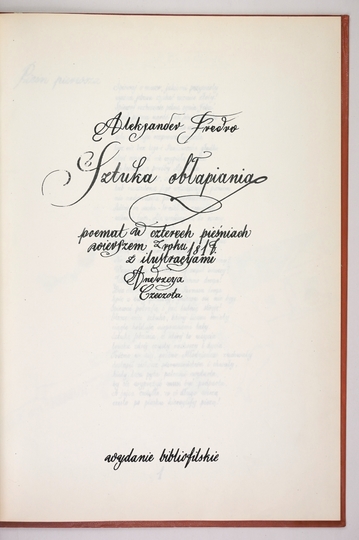 Aleksander Fredro
Sztuka obłapiania
poemat w czterech pieśniach
wierszem z roku 1817.
z ilustracjami
Andrzeja
Czeczota
wydanie bibliofilskie